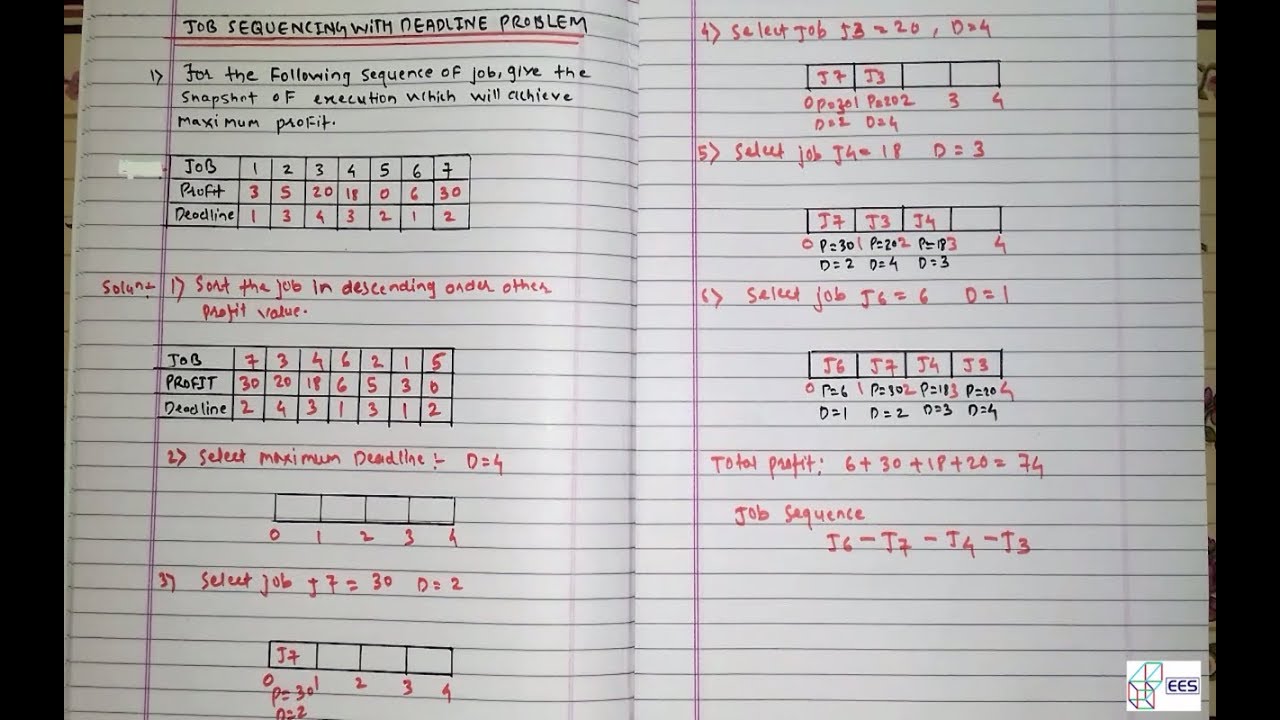 JOB SEQUENCING WITH DEADLINE PROBLEM
1) For the Following sequence of job, give the
snapshot of execution which will achieve
maximum profit.
JOB 1 2 3 4 5 6 7
Profit 3 5 20 18 0 6 30
Deadline 1 3 4 3 2 1 2
Soln:- 1) Sort the job in descending order other
profit value.
JOB 7 3 4 6 2 1 5
PROFIT 30 20 18 6 5 3 0
Deadline 2 4 3 1 3 1 2
2) Select maximum Deadline:- D=4
0 1 2 3 4
3) Select job J7 = 30 D = 2
J7
0 1 2 3 4
P=30
D=2
4) Select job J3 = 20, D=4
J7 J3
0 P=30 1 P=20 2 3 4
D=2 D=4
5) Select job J4= 18 D = 3
J7 J3 J4
0 P=30 1 P=20 2 P=18 3 4
D=2 D=4 D=3
6) Select job J6 = 6 D=1
J6 J7 J4 J3
0 P=6 1 P=30 2 P=18 3 P=20 4
D=1 D=2 D=3 D=4
Total profit: 6+30+18+20 = 74
Job sequence
J6 – J7 – J4 – J3
EES